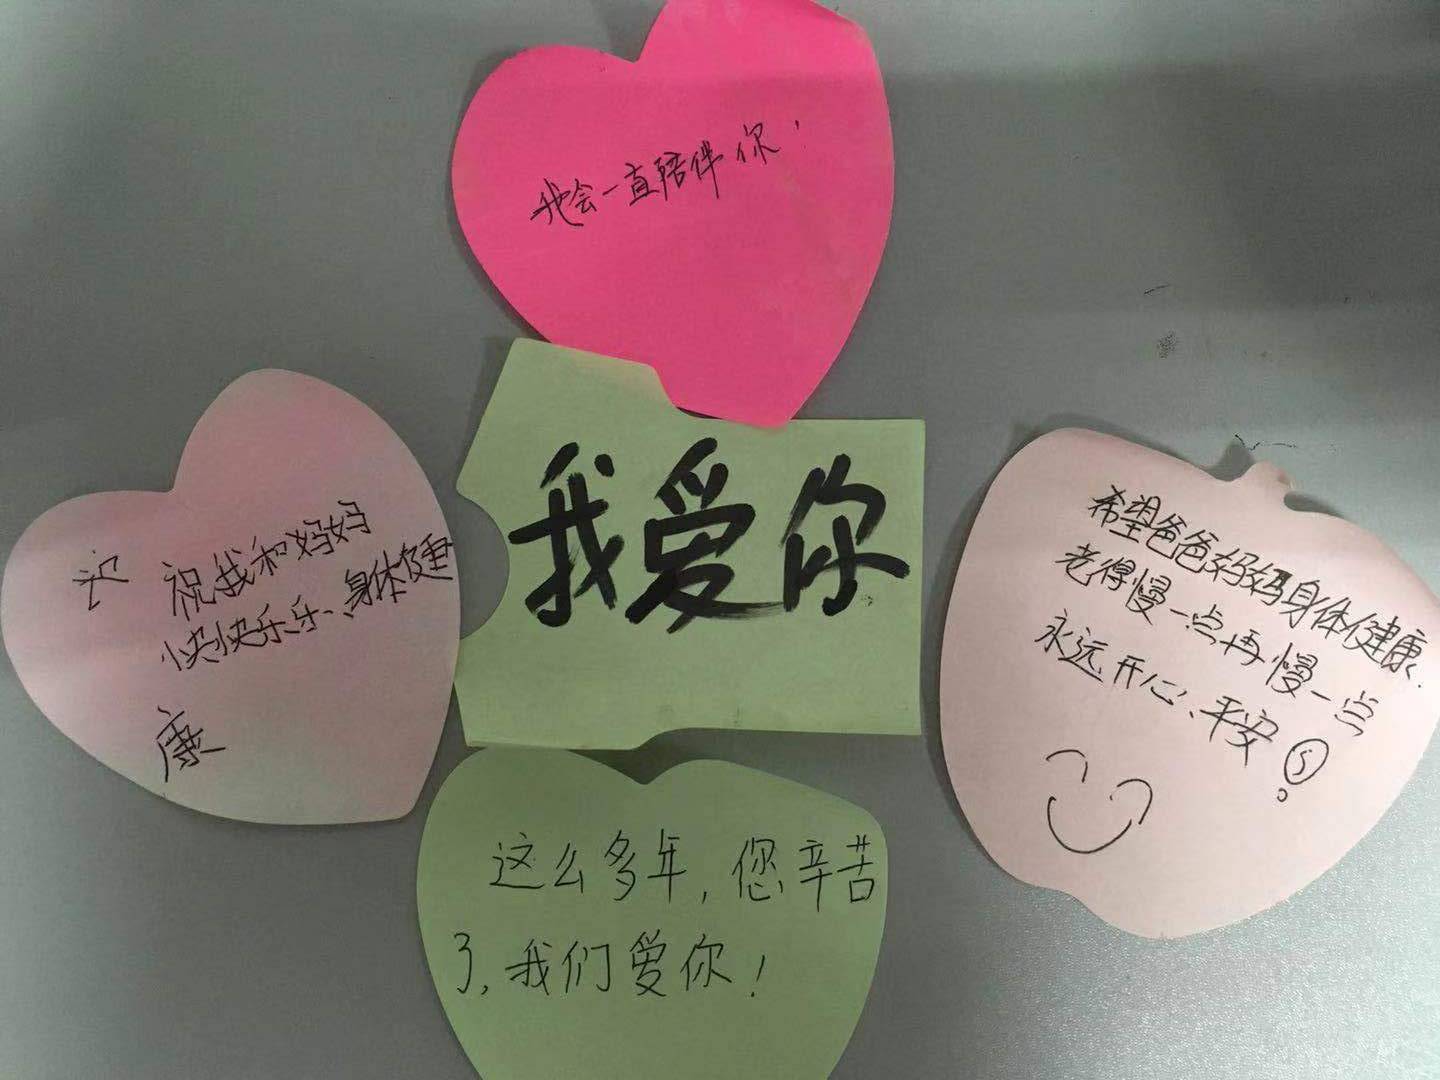 我会一直陪伴你！
我爱你
祝我和妈妈
快快乐乐、身体健
康
希望爸爸妈妈身体健康.
老得慢一点再慢一点
永远开心、平安
这么多年，您辛苦
了，我们爱你！